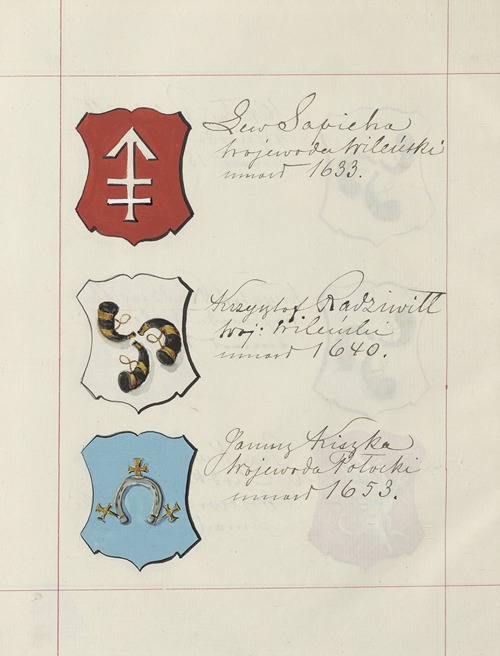 Lew Sapieha
Wojewoda Wileński
umarł 1633.
Krzysztof Radziwiłł
Woj: Wileński
umarł 1640.
Janusz Kiszka
Wojewoda Połocki
umarł 1653.